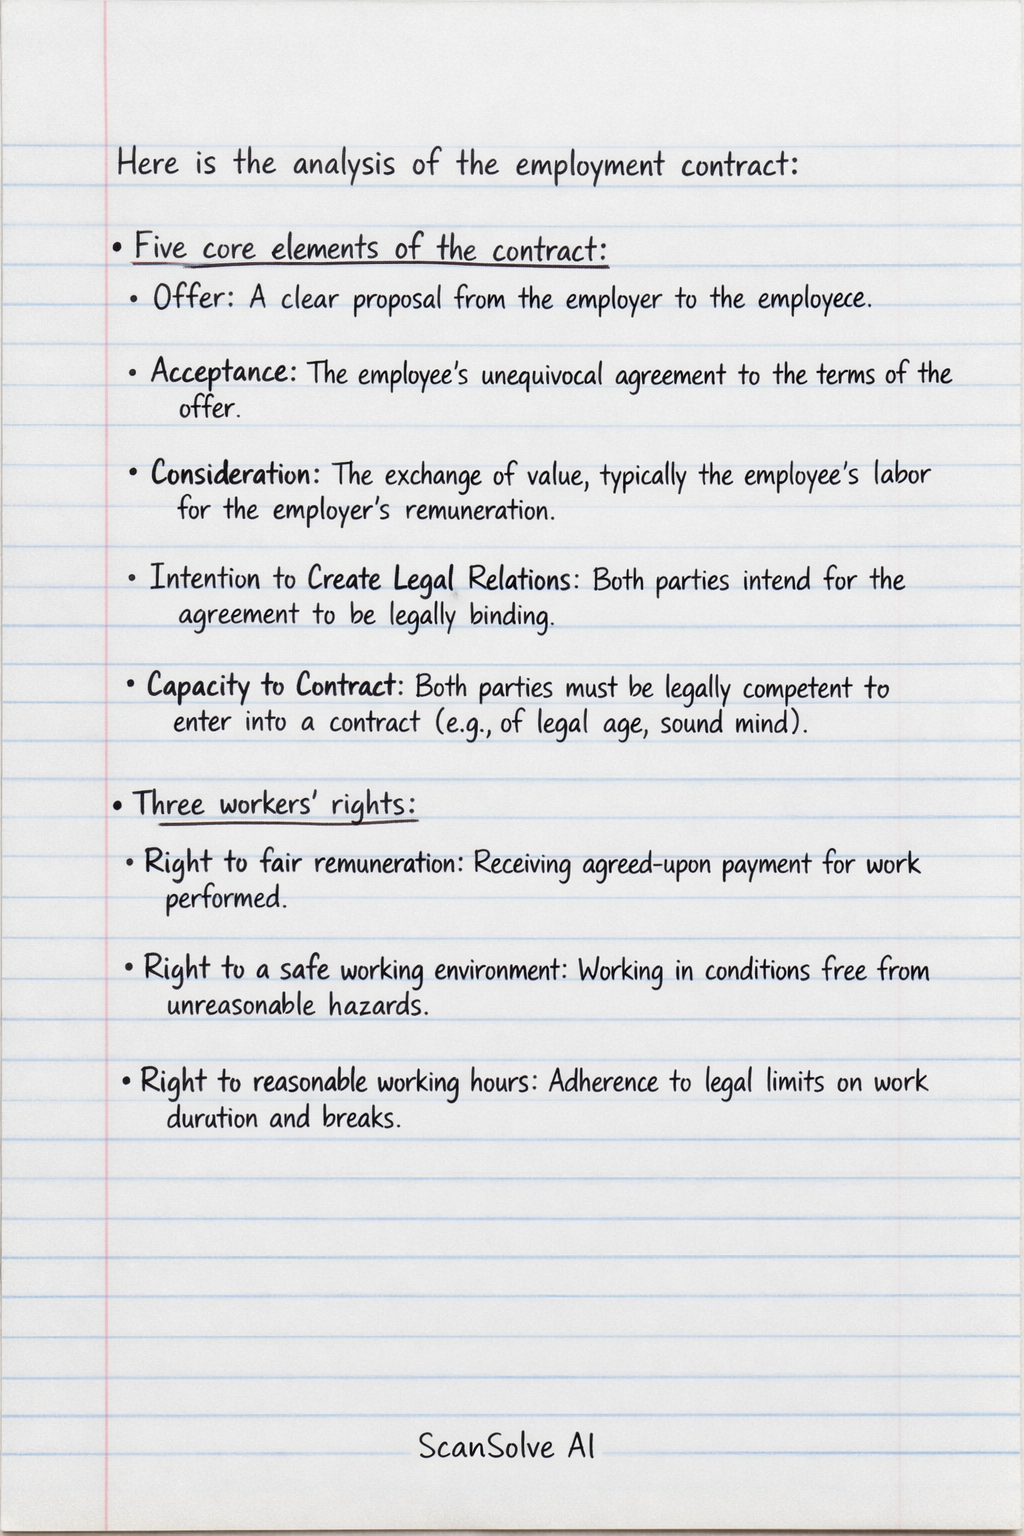 Here is the analysis of the employment contract:
• Five core elements of the contract:
• Offer: A clear proposal from the employer to the employece.
• Acceptance: The employee's unequivocal agreement to the terms of the
offer.
• Consideration: The exchange of value, typically the employee's labor
for the employer's remuneration.
• Intention to Create Legal Relations: Both parties intend for the
agreement to be legally binding.
• Capacity to Contract: Both parties must be legally competent to
enter into a contract (e.g., of legal age, sound mind).
• Three workers' rights:
• Right to fair remuneration: Receiving agreed-upon payment for work
performed.
• Right to a safe working environment: Working in conditions free from
unreasonable hazards.
• Right to reasonable working hours: Adherence to legal limits on work
durution and breaks.
ScanSolve AI